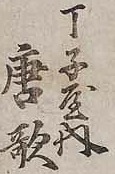 丁子屋内
唐歌